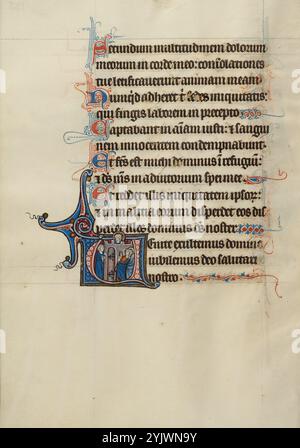 Secundum multitudinem dolorum
meorum in corde meo: consolationes
tue letificauerunt animam meam
Numqid adheret t sedes iniquitatis:
qui fingis laborem in precepto
Captabunt in aīam iusti: et sangui
nem innocentem condempnabunt
Et fcs est michi dominus ī refugiū:
et ds ms in adiutorium spei mee
Et reddet illis iniquitatem ipsoꝝ:
et in malicia eorum disperdet eos dis
perdet illos dominus ds noster
Venite exultemus domino
iubilemus deo salutari
nostro
alamy
Image ID: 2YJWN9Y
www.alamy.com